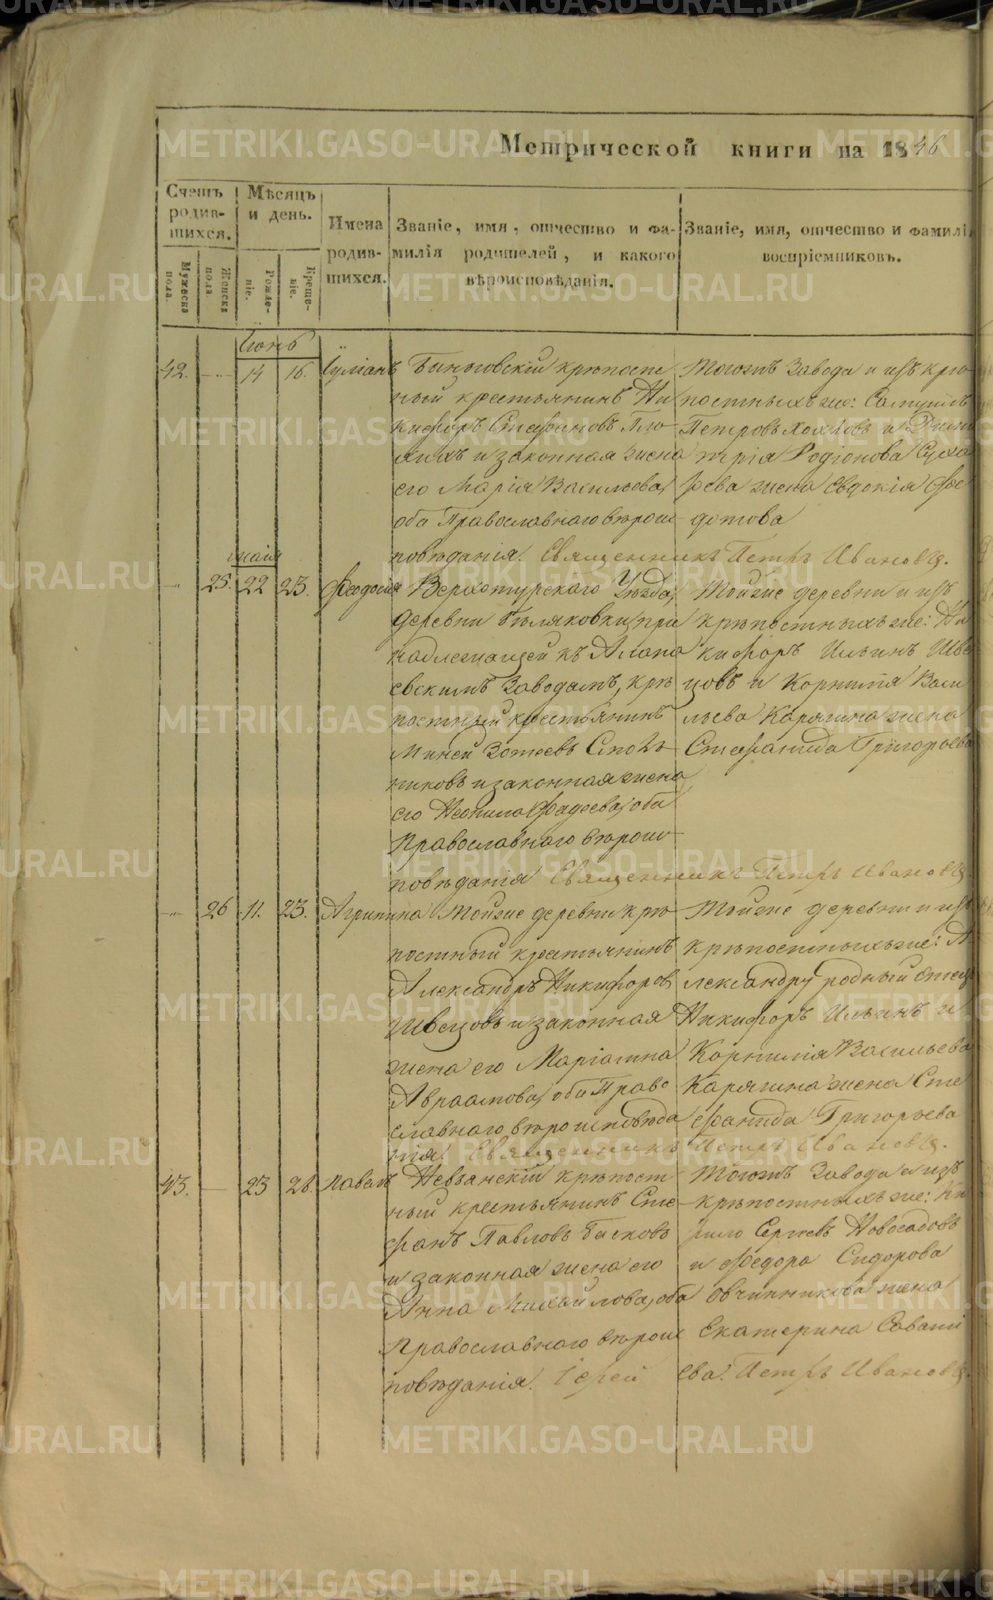 METRIKI.GASO-URAL.RU
Метрической книги на 1846
Счетъ родившихся.
Мѣсяцъ и день.
Имена родившихся.
Званіе, имя, отчество и фамилія родителей, и какого вѣроисповѣданія.
Званіе, имя, отчество и фамилія воспріемниковъ.
Мужеска пола.
Женска пола
Рожденіе.
Крещеніе.
Іюнь
42. 14 16. Іуліанъ
Быньговскій крѣпост
ной крестьянинъ Ни
кифоръ Стефановъ
и законная жена
его Марія Васильева,
оба Православнаго вѣроис
повѣданія. Священникъ Петръ Ивановъ.
Тогожъ Завода и изъ крѣ
постныхъ же: Самуилъ
Петровъ и Дими
трія Родіонова Суха
рева жена Евдокія Фе
дотова
маія
25. 22 23. Феодосія
Верхотурскаго Уѣзда,
деревни Бѣляковки, при
надлежащей къ Алапа
евскимъ Заводамъ, крѣ
постный крестьянинъ
Миней Зотеевъ
и законная жена
его Неонила Фадеева, оба
Православнаго вѣроис
повѣданія Священникъ Петръ Ивановъ.
Тойже деревни и изъ
крѣпостныхъ же: Ни
кифоръ Ильинъ Шве
цовъ и Корнилія Васи
льева Карягина жена
Стефанида Григорьева
26 11. 23. Агрипина
Тойже деревни крѣ
постный крестьянинъ
Александръ Никифоровъ
Швецовъ и законная
жена его Маріамна
Авраамова, оба Право
славнаго вѣроисповѣда
нія. Священникъ Петръ Ивановъ.
Тойже деревни и изъ
крѣпостныхъ же: А
лександру родный Отецъ
Никифоръ Ильинъ и
Корнилія Васильева
Карягина жена Сте
фанида Григорьева
43. 23 26. Павелъ
Невьянскій крѣпост
ный крестьянинъ Сте
фанъ Павловъ Басковъ
и законная жена его
Анна Михайлова, оба
Православнаго вѣроис
повѣданія. Іерей Петръ Ивановъ.
Тогожъ Завода и изъ
крѣпостныхъ же: Ки
рило Сергѣевъ Новосадовъ
и Федора Сидорова
Овчинникова жена
Екатерина Савати
ева.